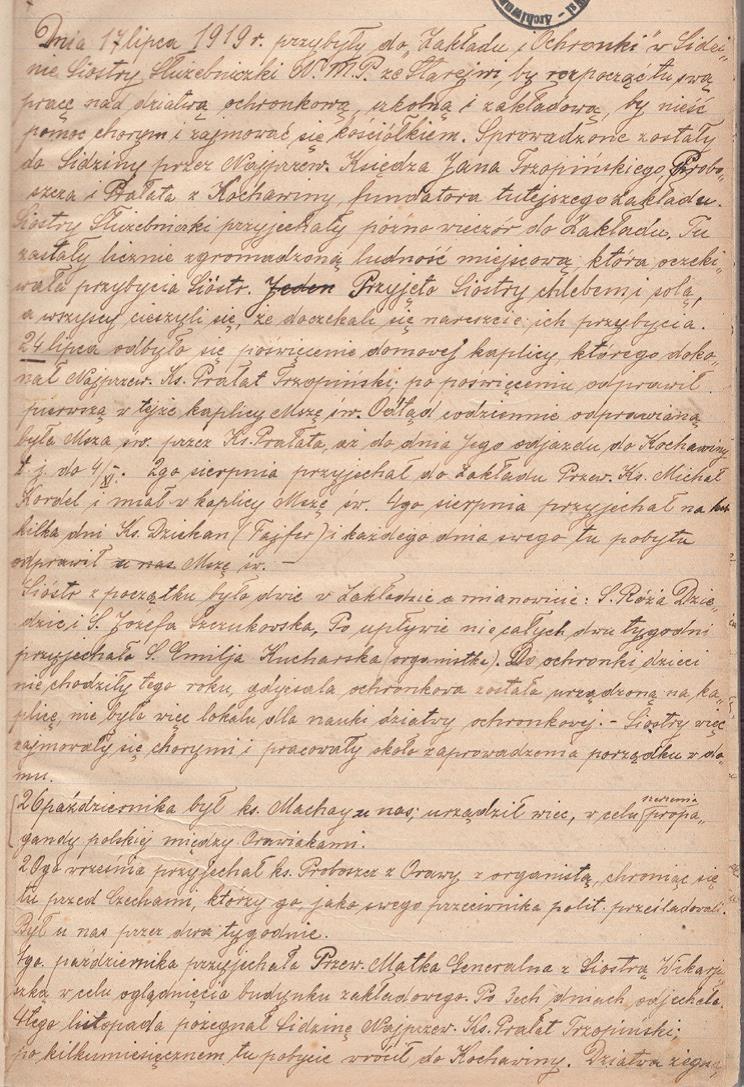 Archiwum
Dnia 17 lipca 1919 r. przybyły do „Zakładu i Ochronki" w Sidzi„
nie Siostry Służebniczki N. M. P. ze Starejwsi, by rozpocząć tu swą
pracę nad dziatwą ochronkową, szkolną i zakładową, by nieść
pomoc chorym i zajmować się kościółkiem. Sprowadzone zostały
do Sidziny przez Najprzew. Księdza Jana Trzopińskiego, Probo„
szcza i Prałata z Kochawiny, fundatora tutejszego zakładu.
Siostry Służebniczki przyjechały późno wieczór do Zakładu. Tu
zastały licznie zgromadzoną ludność miejscową, która oczeki„
wała przybycia Sióstr. Jeden Przyjęto Siostry chlebem i solą,
a wszyscy cieszyli się, że doczekali się nareszcie ich przybycia.
24 lipca odbyło się poświęcenie domowej kaplicy, którego doko„
nał Najprzew. Ks. Prałat Trzopiński; po poświęceniu odprawił
pierwszą w tejże kaplicy Mszę św. Odtąd codziennie odprawianą
była Msza św. przez Ks. Prałata, aż do dnia Jego odjazdu do Kochawiny
t. j. do 4/XI. 2go sierpnia przyjechał do Zakładu Przew. Ks. Michał
Kordel i miał w kaplicy Mszę św. 4go sierpnia przyjechał na
kilka dni Ks. Dziekan (Fajfer) i każdego dnia swego tu pobytu
odprawił u nas Mszę św. –
Sióstr z początku było dwie w Zakładzie a mianowicie: S. Róża Dzie„
dzic i S. Józefa Szczukowska, Po upływie niecałych dwu tygodni
przyjechała S. Emilja Kucharska (organistka). Do ochronki dzieci
nie chodziły tego roku, gdyż sala ochronkowa została urządzoną na ka„
plicę, nie było więc lokalu dla nauki dziatwy ochronkowej. – Siostry więc
zajmowały się chorymi i pracowały około zaprowadzenia porządku w do„
mu.
26 października był ks. Machay u nas; urządził wiec, w celu szerzenia propa„
gandy polskiej między Orawiakami.
20go września przyjechał ks. Proboszcz z Orawy z organistą, chroniąc się
tu przed Czechami, którzy go, jako swego przeciwnika polit. prześladowali.
Był u nas przez dwa tygodnie.
4go października przyjechała Przew. Matka Generalna z Siostrą Wikarju„
szką w celu oglądnięcia budynku zakładowego. Po 3ech dniach odjechała.
4tego listopada pożegnał Sidzinę Najprzew. Ks. Prałat Trzopiński;
po kilkumiesięcznem tu pobycie wrócił do Kochawiny. Dziatwa żegna„